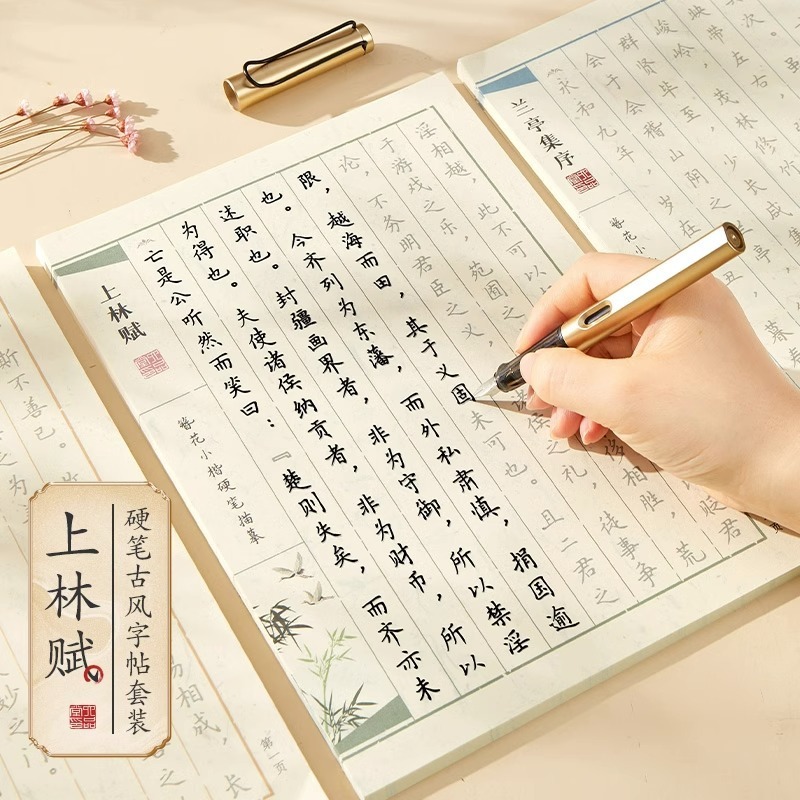 上林赋
簪花小楷硬笔描摹
亡是公听然而笑曰：『楚则失矣，而齐亦未
为得也。夫使诸侯纳贡者，非为财币，所以
述职也。封疆画界者，非为守御，所以禁淫
也。今齐列为东藩，而外私肃慎，捐国逾
限，越海而田，其于义固未可也。且二君之
论，不务明君臣之义，诸侯之礼，徒事争
于游戏之乐，苑囿之相胜，荒
淫相越，此不可以贬君
兰亭集序
簪花小
永和九年，岁在丑，暮春
会于会稽山阴之兰亭
群贤毕至，少长咸集
峻岭，茂林修竹
映带左右，
斯不善已。
相成，长
第一页
上林赋
硬笔古风字帖套装